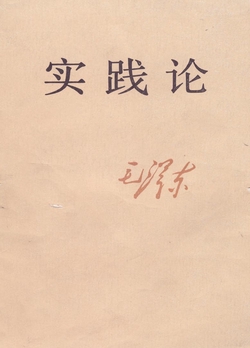 实践论
毛泽东